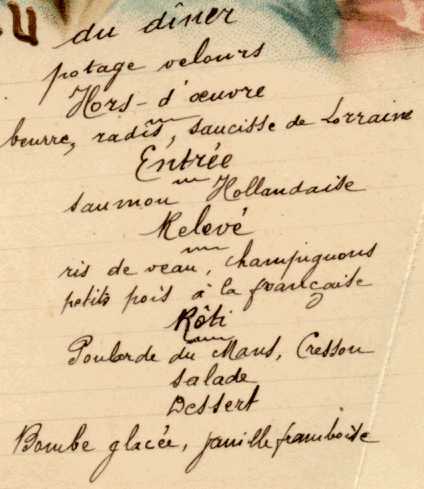 du dîner
potage velours
Hors-d'œuvre
beurre, radis, saucisse de Lorraine
Entrée
saumon Hollandaise
Relevé
ris de veau, champignons
petits pois à la française
Rôti
Poularde du Mans, Cresson
salade
Dessert
Bombe glacée, vanille framboise